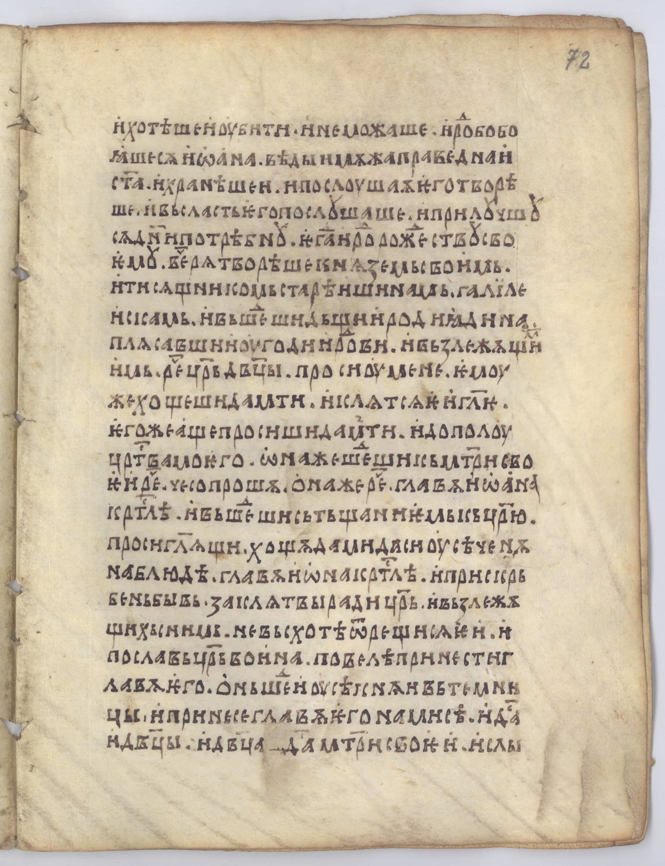 72
и҆хотѣше и҆оубити · и҆не можаше · и҆рⷣо бо бо
ꙗ҆ше сѧ и҆ѡ҆ана · вѣды и҆ мѫжа праведна и҆
ст҃а · и҆хранѣше и · и послоушаѧ ѥго творѣ
ше · и҆ вьсласть ѥго послꙋшаше · и҆прилꙋчшꙋ
сѧ дн҃и потрѣбнꙋ · ѥгⷣа и҆рⷣо рожествꙋ сво
ѥмꙋ · вечерѧ творѣше кнѧземь своимь ·
и҆ тисѧщникомь старѣишинамь · галиле
искамь · и҆ вьшеⷣши дьщи и҆родиꙗдина
плѧсавши и҆ оугоди и҆рⷣови · и҆ вьзлежѧщи
имь · реⷱ цр҃ь дв҃цы · проси оу мене · ѥмоу
же хощеши дам ти · и҆ клѧтсѧ ѥи гл҃ѥ ·
ѥгоже аще просиши дам ти · и҆ до полоу
црⷭтва моѥго · ѡ҆на же шеⷣши кь мт҃ри сво
ѥи реⷱ · чесо прошѫ · ѻ҆на же реⷱ · главѫ и҆ѡ҆ана
крⷭтлѣ · и҆ вьшеⷣши сь тьщаниѥмь кь цр҃ю ·
проси гл҃ѧщи · хощѫ да ми даси оусѣченѫ
на блюдѣ · главѫ и҆ѡ҆на крⷭтлѣ · и҆ прискрь
бень бывь · за клѧтвы ради цр҃ь · и҆ вьзлежѫ
щихь с нимь · не вьсхотѣ ѿрещи сѧ ѥи · и҆
пославь цр҃ь воина · повелѣ принести г
лавѫ ѥго · ѻ҆нь шеⷣ и҆ оусѣкнѫ и вь темни
цы · и҆ принесе главѫ ѥго на мисѣ · и҆ дⷭа
и дв҃цы · и҆ дв҃ца да мт҃ри своѥи · и҆ слы